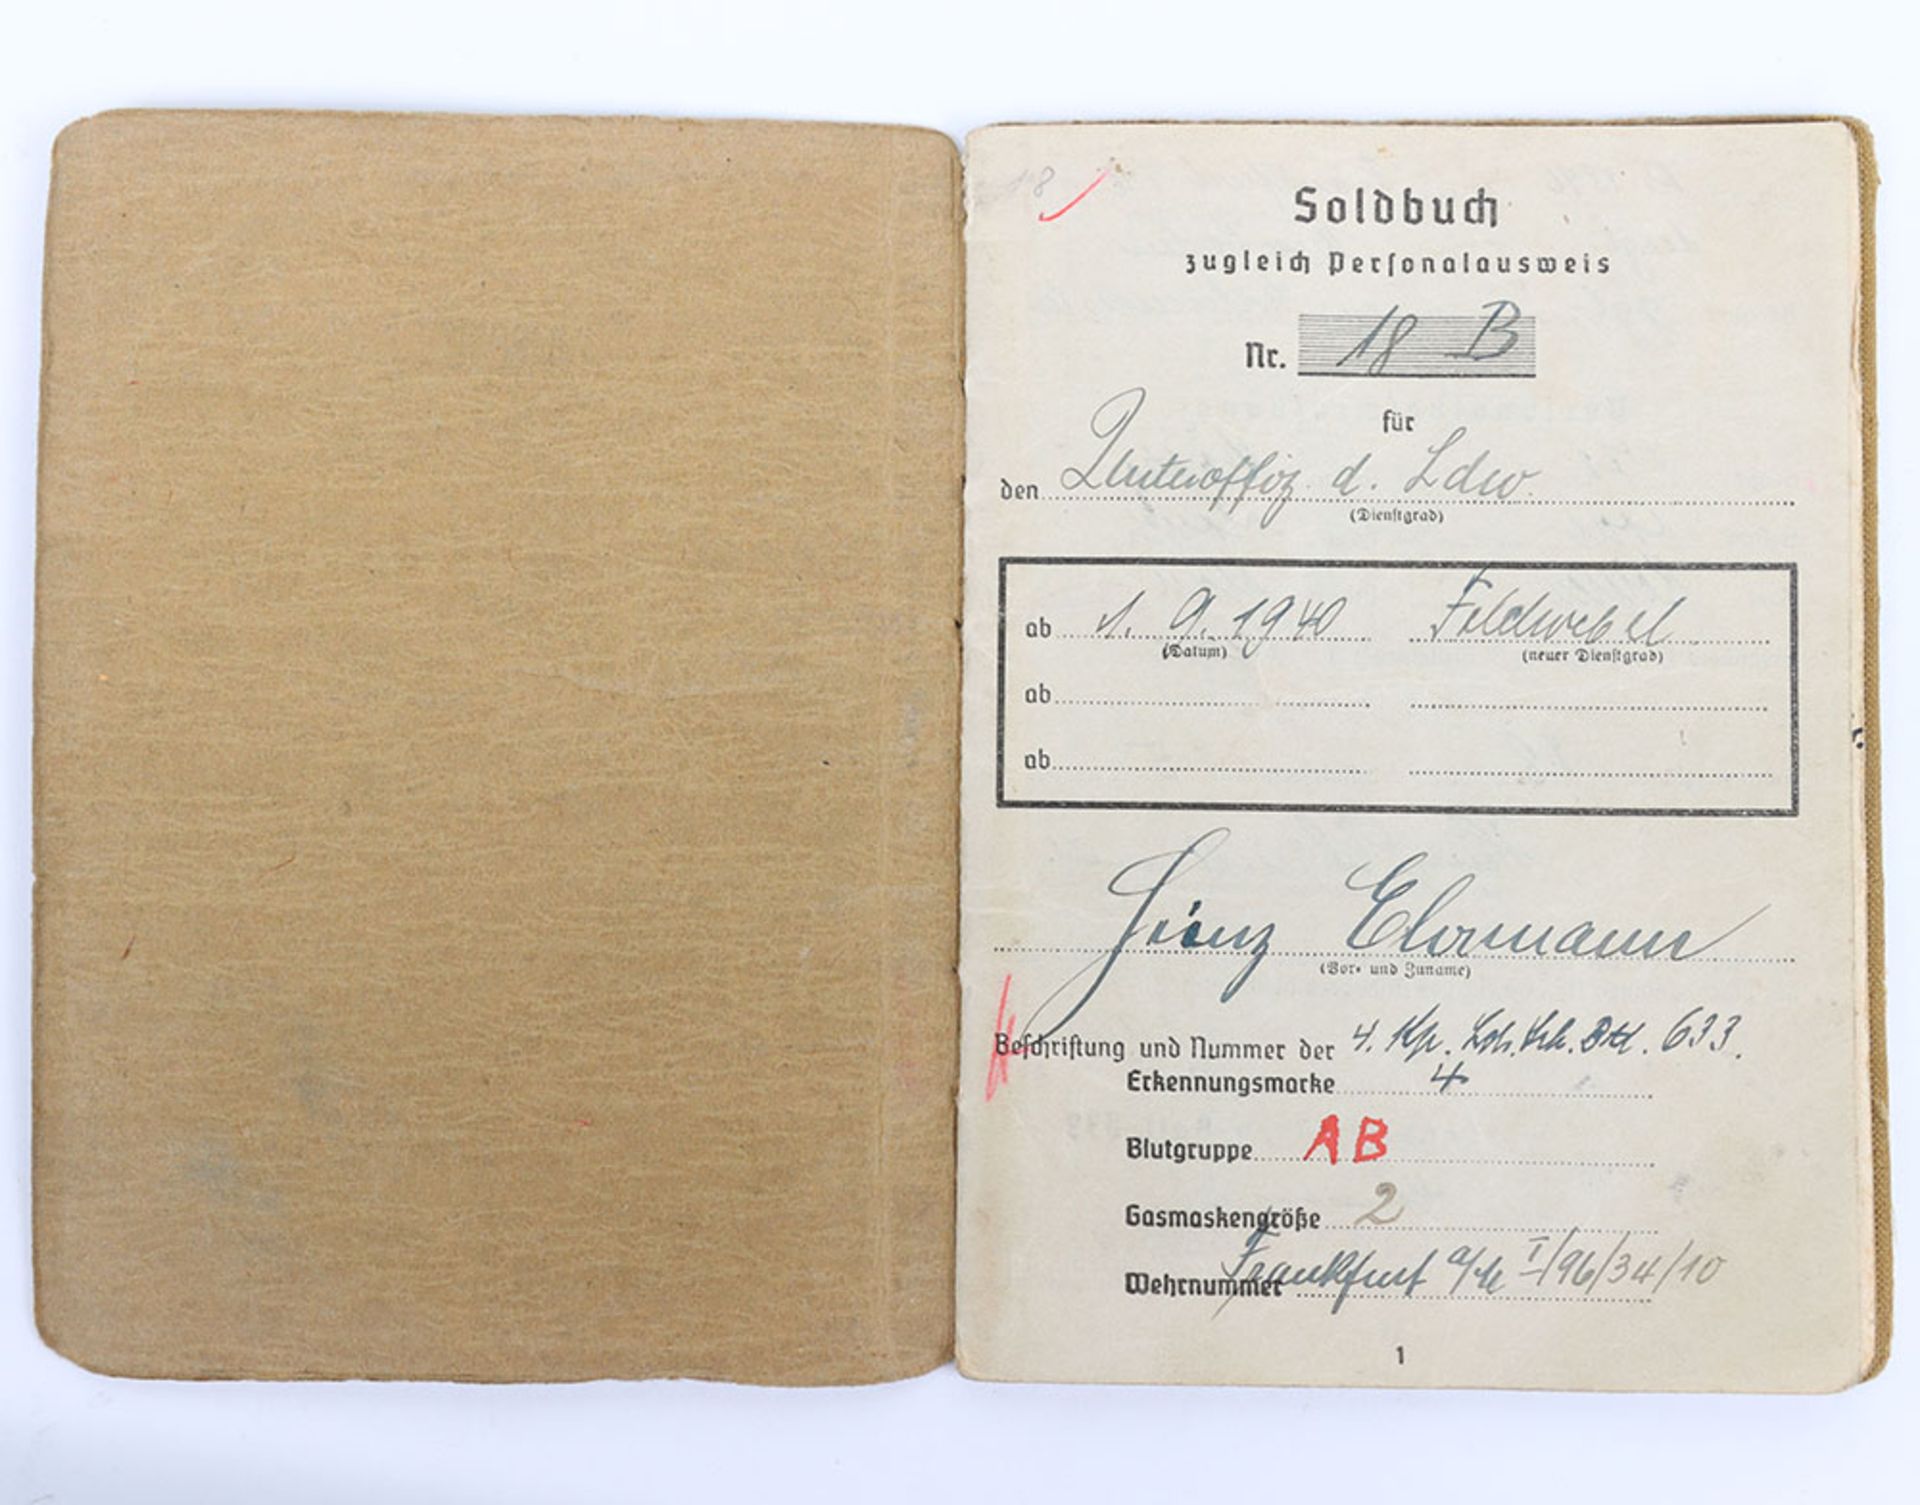 18
Soldbuch
zugleich Personalausweis
Nr. 18 B
für
den Unteroffiz. d. Ldw.
(Dienstgrad)
ab 1. 9. 1940 Feldwebel
(Datum) (neuer Dienstgrad)
ab
ab
Heinz Ehrmann
(Vor- und Zuname)
Beschriftung und Nummer der 4. Kp. Lds. Sch. Btl. 633.
Erkennungsmarke 4
Blutgruppe AB
Gasmaskengröße 2
Wehrnummer Frankfurt a/M I/96/34/10
1